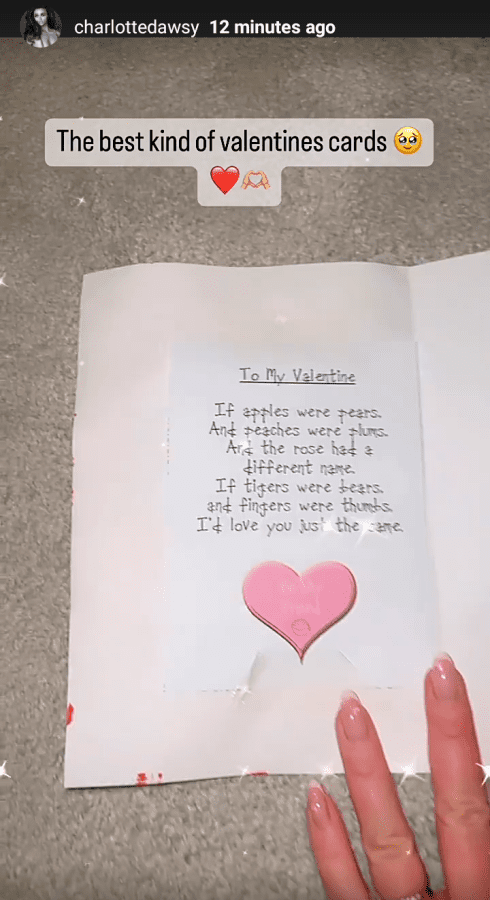 charlottedawsy 12 minutes ago
The best kind of valentines cards 🥹
❤️🫶🏻
To My Valentine
If apples were pears.
And peaches were plums.
And the rose had a
different name.
If tigers were bears.
and fingers were thumbs.
I'd love you just the same.